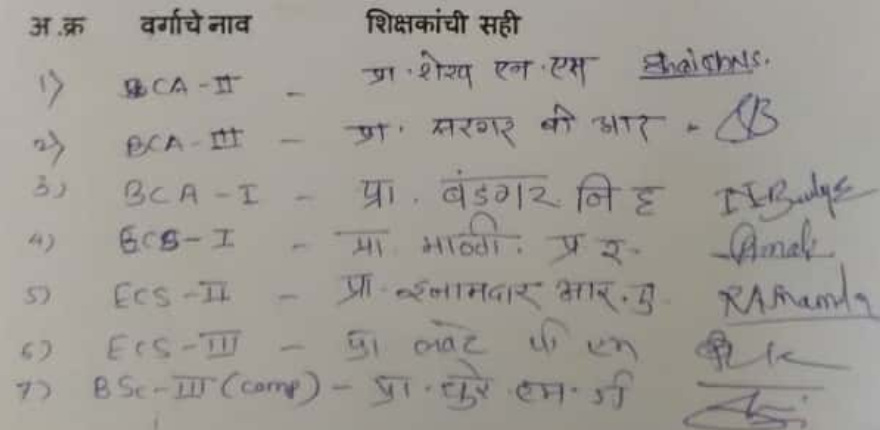 अ.क्र वर्गाचे नाव शिक्षकांची सही
1) BCA-II - प्रा.शेख एन.एस ShaikhNS.
2) BCA-III - प्रा. सरगर बी आर -
3) BCA-I - प्रा. बंडगर नि ह
4) ECS-I - प्रा. माळी. प्र र.
5) ECS-II - प्रा. इनामदार आर.ए.
6) ECS-III - प्रा लवटे पी एम
7) BSc-III (comp) - प्रा. चुरे एम.जी